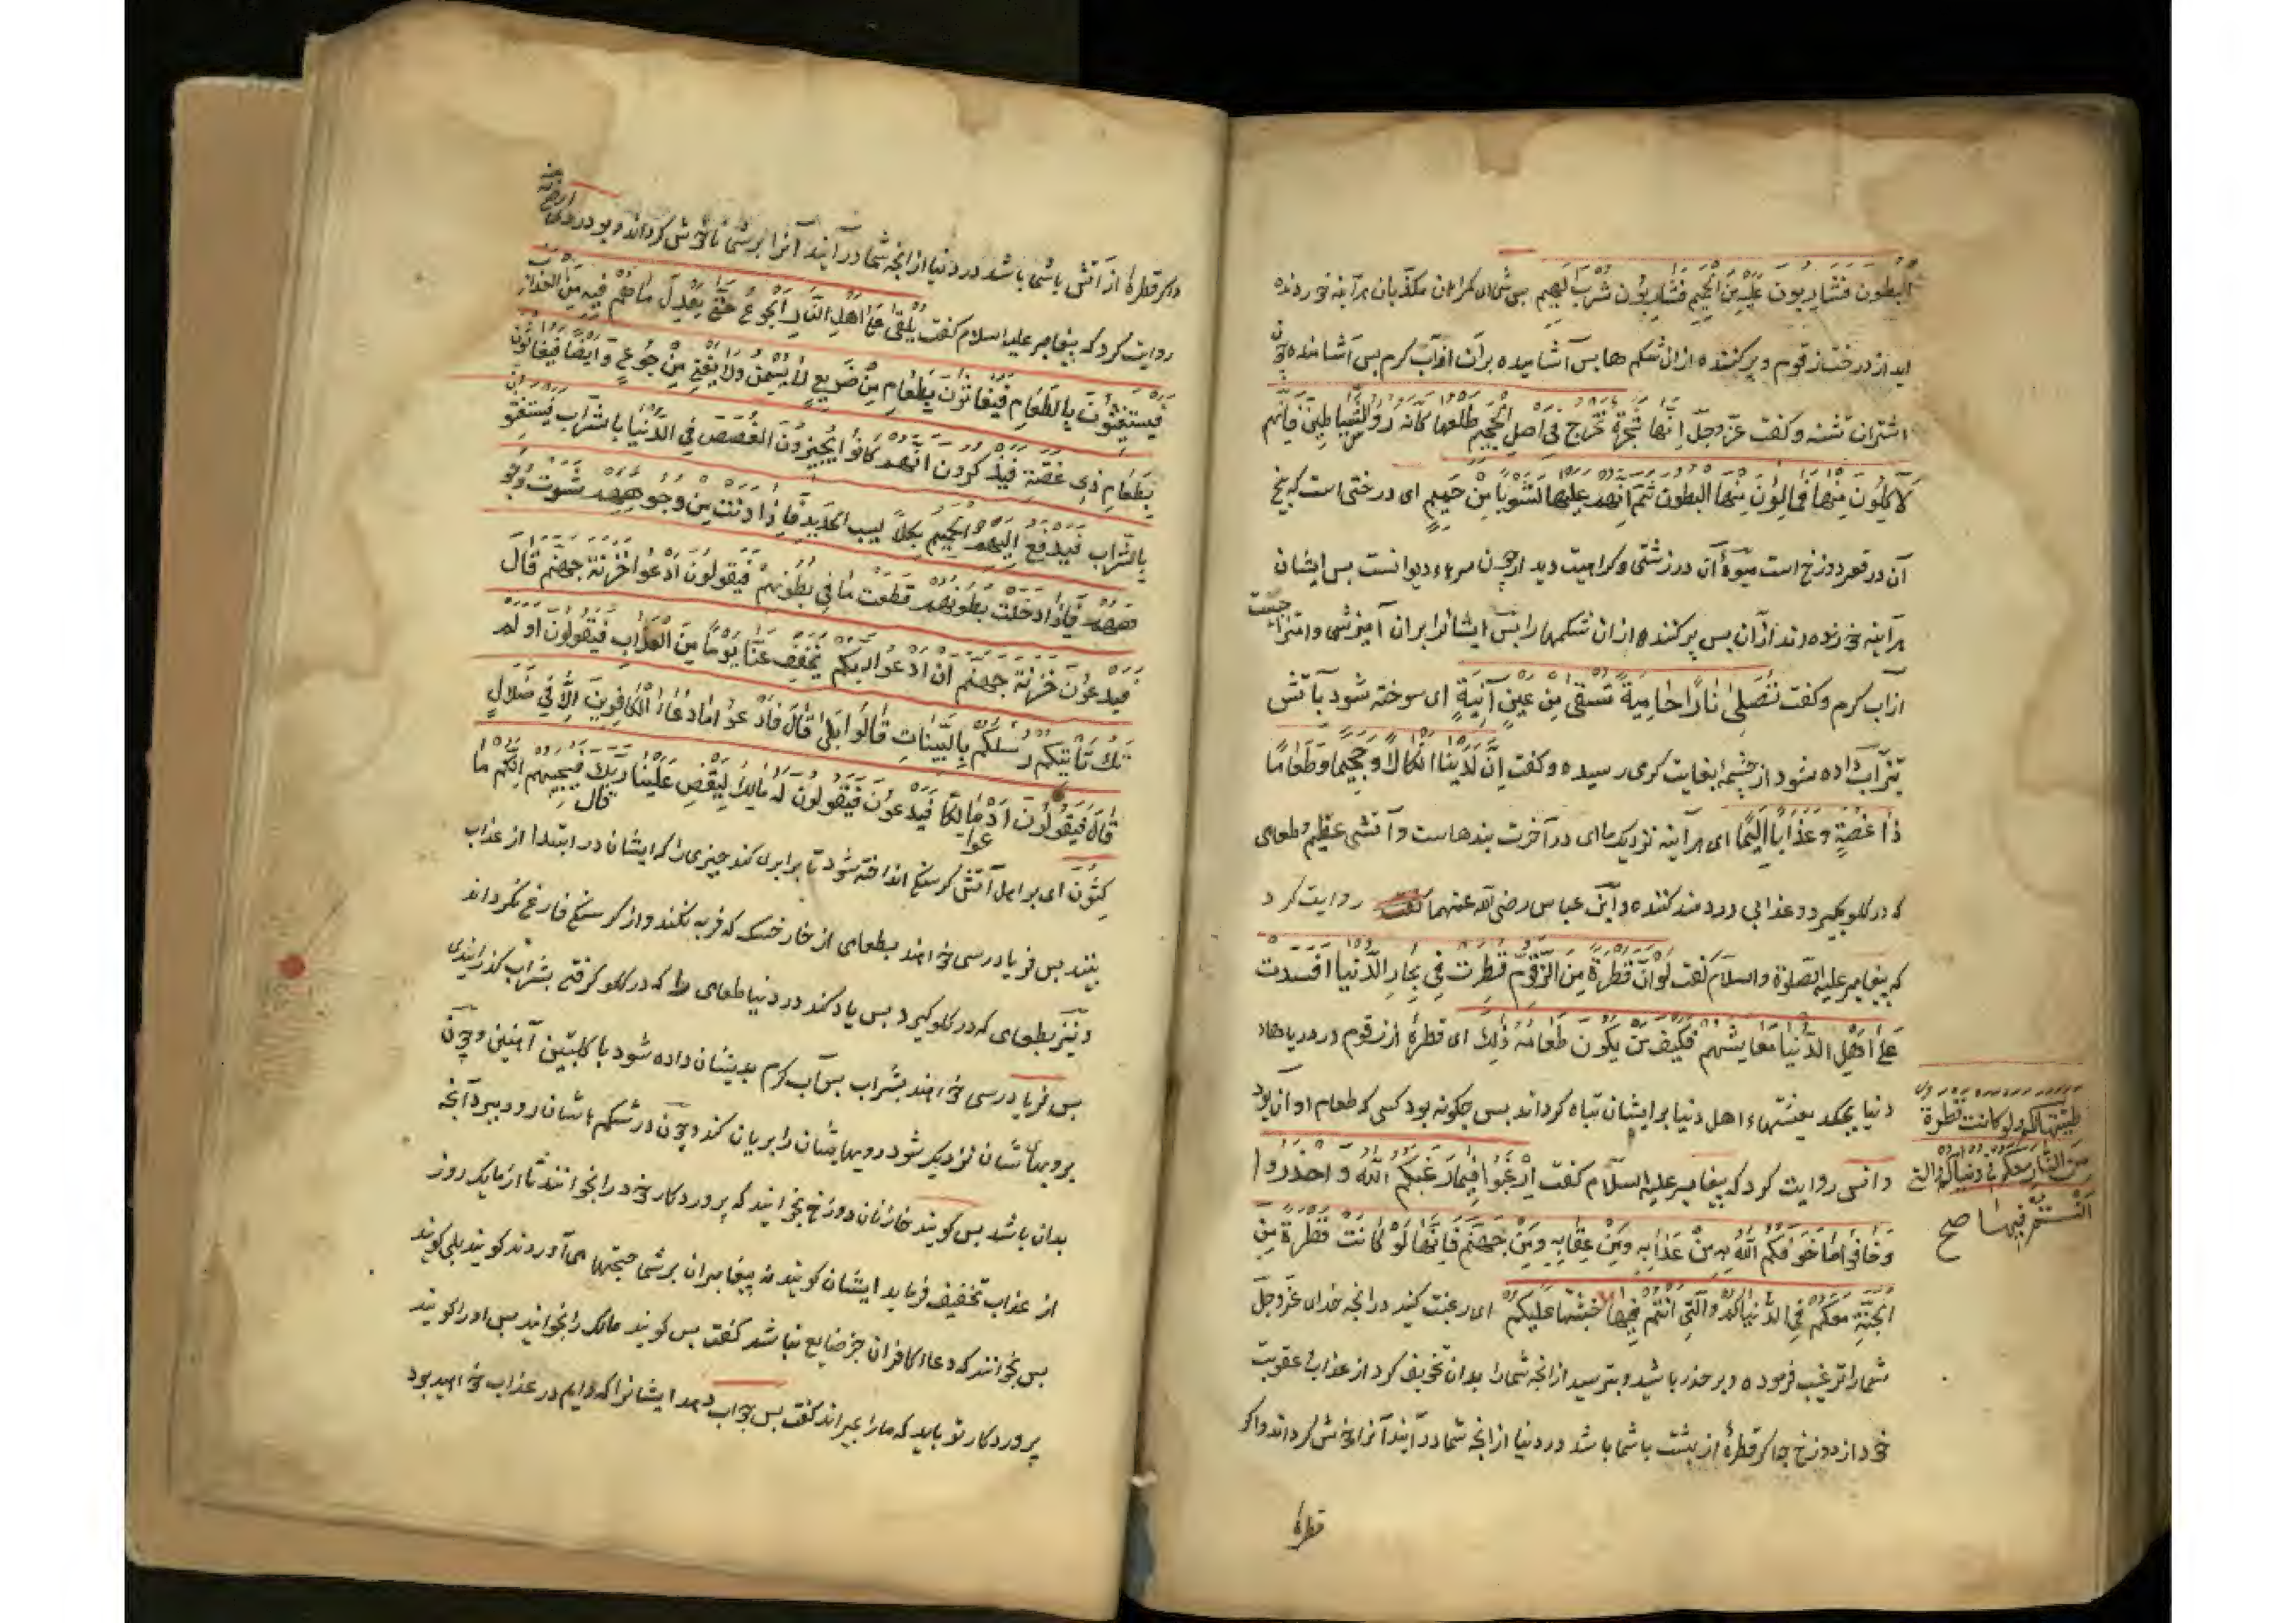 البطون فشاربون عليه من الحميم فشاربون شرب الهيم پس شما ای کمراهان مکذبان هرآینه خورنده
اید از درخت زقوم و پر کننده از ان شکم ها پس آشامیده بر ان از آب کرم پس آشامنده چون
اشتران تشنه و کفت عز وجل انها شجرة تخرج فی اصل الجحیم طلعها کانه رؤس الشیاطین فانهم
لآکلون منها فمالؤن منها البطون ثم ان لهم علیها لشوبا من حمیم ای درختی است که بیخ
آن در قعر دوزخ است میوۀ آن در زشتی و کراهیت دیدار چون سرهاء دیوانست پس ایشان
هرآینه خورنده اند از ان پس پر کننده از ان شکمها را پس ایشانرا بر ان آمیزشی و امتزاجیست
از آب کرم و کفت تصلی نارا حامیة تسقی من عین آنیة ای سوخته شود بآتش
شراب داده شود از چشمۀ بغایت کرمی رسیده و کفت ان لدینا انکالا وجحیما وطعاما
ذا غصة وعذابا الیما ای هرآینه نزدیک ما ای در آخرت بندهاست و آتشی عظیم و طعامی
که در کلو بکیرد و عذابی دردمند کننده و ابن عباس رضی الله عنهما کفت روایت کرد
که پیغامبر علیه الصلوة والسلام کفت لو ان قطرة من الزقوم قطرت فی بحار الدنیا افسدت
علی اهل الدنیا معایشهم فکیف من یکون طعامه ذلک ای قطرۀ از زقوم در دریاهاء
دنیا بچکد معیشتهاء اهل دنیا بر ایشان تباه کرداند پس چکونه بود کسی که طعام او ان بود
و انس روایت کرد که پیغامبر علیه السلام کفت ارغبوا فیما رغبکم الله واحذروا
وخافوا ما خوفکم الله به من عذابه ومن عقابه ومن جهنم فانها لو کانت قطرة من
الجنة معکم فی الدنیاکم التی انتم فیها خبثتها علیکم ای رغبت کنید در انچه خدای عزوجل
شما را ترغیب فرموده و بر حذر باشید و بترسید از انچه شما را بدان تخویف کرد از عذاب عقوبت
خود از دوزخ چه اکر قطرۀ از بهشت با شما باشد در دنیا از انچه شما در آنید آنرا خوش کرداند و اکر
قطرۀ
طیبتها لکم ولو کانت قطرة
من النار معکم فی دنیاکم التی
انتم فیها صح
از آتش باشما باشد در دنیا از انچه شما در آنید آنرا بر شما ناخوش کرداند و بو دردا
روایت کرد که پیغامبر علیه السلام کفت یلقی علی اهل النار الجوع حتی یعدل ما هم فیه من العذاب
فیستغیثون بالطعام فیغاثون بطعام من ضریع لا یسمن ولا یغنی من جوع وایضا فیغاثون
بطعام ذی غصة فیذکرون انهم کانوا یجیزون الغصص فی الدنیا بالشراب فیستغیثون
بالشراب فیدفع الیهم الحمیم بکلالیب الحدید فاذا دنت من وجوههم شوت وجو
ههم فاذا دخلت بطونهم قطعت ما فی بطونهم فیقولون ادعوا خزنة جهنم قال
فیدعون خزنة جهنم ان ادعوا ربکم یخفف عنا یوما من العذاب فیقولون او لم
تک تأتیکم رسلکم بالبینات قالوا بلی قال فادعوا وما دعاء الکافرین الا فی ضلال
قال فیقولون ادعوا مالکا فیدعون فیقولون له مالک لیقض علینا ربک فیجیبهم قال انکم ما
کثون ای بر اهل آتش کرسنکی انداخته شود تا برابری کند چیزی را که ایشان در ابتدا از عذاب
بینند پس فریادرسی خواهند بطعامی از خار خسک که فربه نکند و از کرسنکی فارغ نکرداند
و نیز بطعامی که در کلو کیرد پس یاد کنند در دنیا طعامی را که در کلو کرفتی بشراب کذرانیدی
پس فریادرسی خواهند بشراب پس آب کرم بدیشان داده شود با کلبتین آهنین و چون
برویهاشان نزدیک شود رویهایشان را بریان کند و چون در شکمهاشان رود ببرد آنچه
بدان باشد پس کویند خازنان دوزخ بخوانید که پروردکار خود را بخوانند تا از ما یک روز
از عذاب تخفیف فرماید ایشان کویند نه پیغامبران بر شما حجتها می آوردند کویند بلی کویند
پس بخوانند که دعاء کافران جز ضایع نباشد کفت پس کویند مالک را بخوانید پس او را کویند
پروردکار تو باید که ما را بمیراند کفت پس جواب دهد ایشانرا که دایم در عذاب خواهید بود